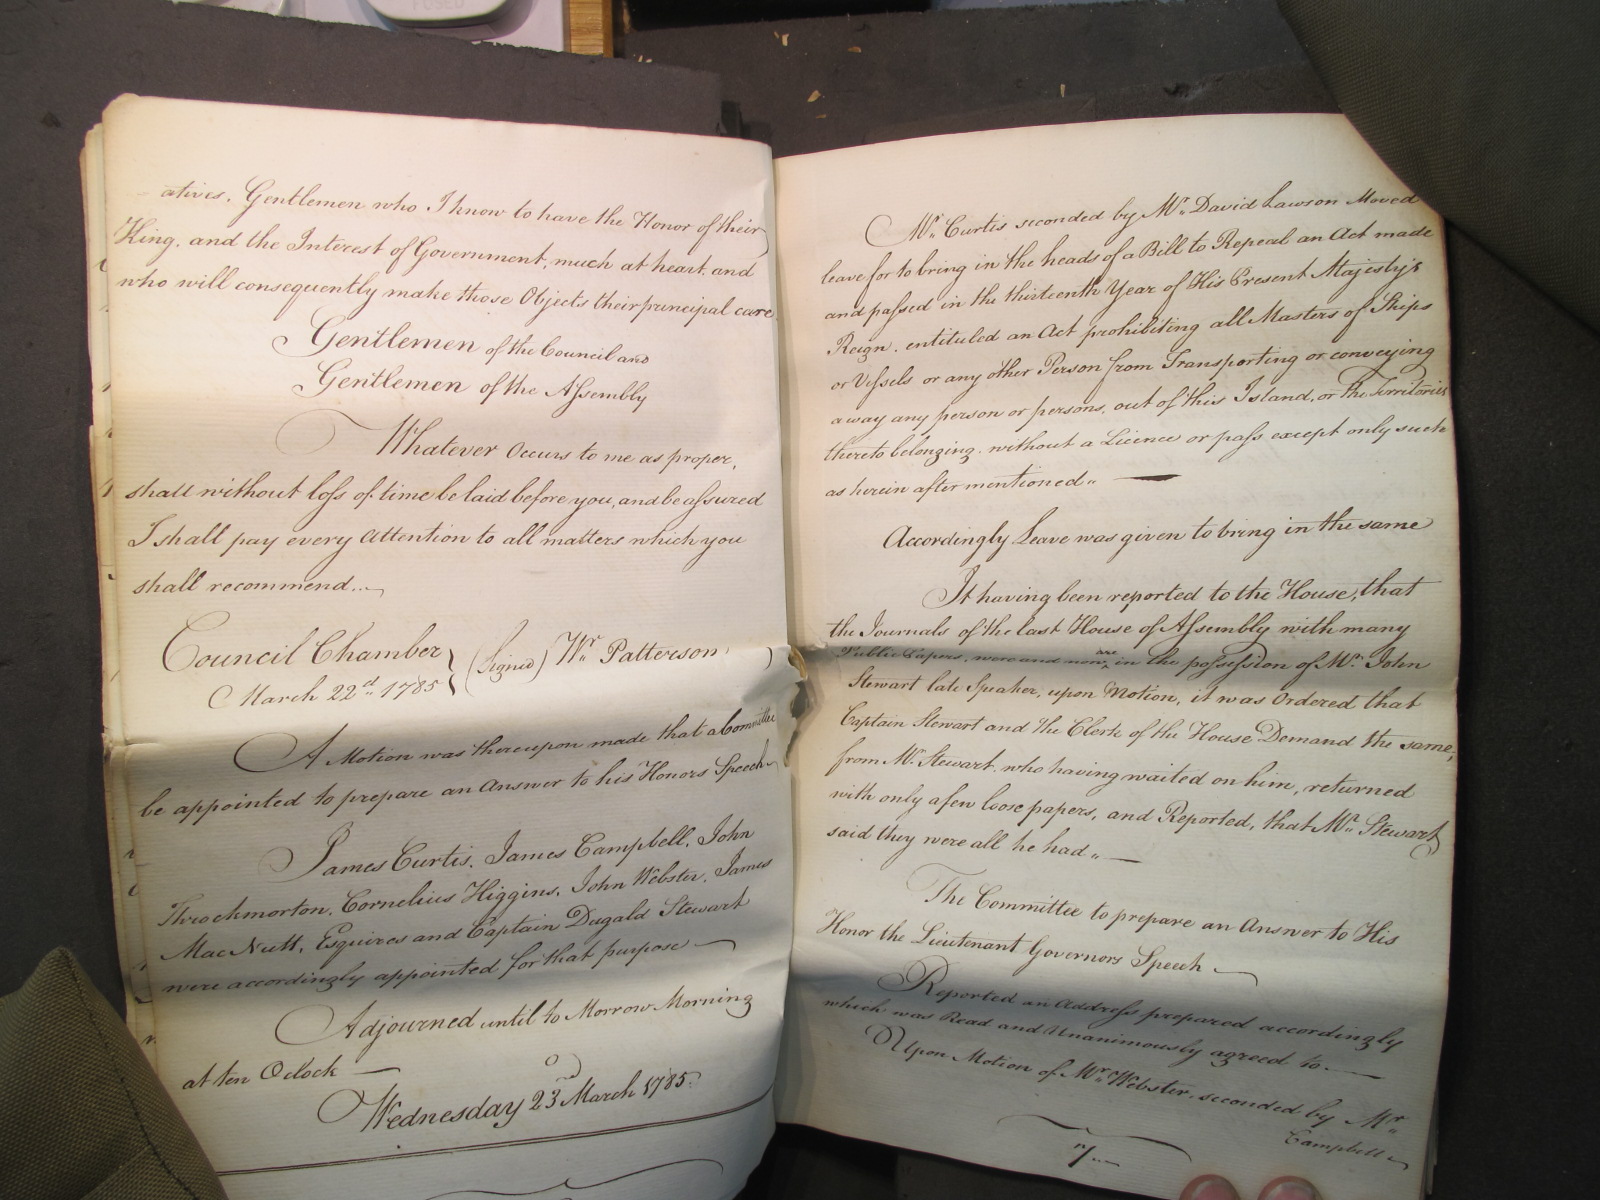 FUSED
atives, Gentlemen who I know to have the Honor of their
King, and the Interest of Government, much at heart, and
who will consequently make those Objects their principal care
Gentlemen of the Council and
Gentlemen of the Assembly
Whatever Occurs to me as proper,
shall without loss of time be laid before you, and be assured
I shall pay every Attention to all matters which you
shall recommend...
Council Chamber } (Signed) Wr. Patterson
March 22d. 1785
A Motion was thereupon made that a Committee
be appointed to prepare an Answer to his Honors Speech
James Curtis, James Campbell, John
Throckmorton, Cornelius Higgins, John Webster, James
MacNutt, Esquires and Captain Dugald Stewart
were accordingly appointed for that purpose
Adjourned until to Morrow Morning
at ten O'clock
Wednesday 23rd March 1785
Mr. Curtis seconded by Mr. David Lawson Moved
leave for to bring in the heads of a Bill to Repeal an Act made
and passed in the thirteenth Year of His Present Majesty's
Reign, entituled an Act prohibiting all Masters of Ships
or Vessels or any other Person from Transporting or conveying
away any person or persons, out of this Island, or the Territories
thereto belonging, without a Licence or pass except only such
as herein after mentioned..
Accordingly Leave was given to bring in the same
It having been reported to the House, that
the Journals of the last House of Assembly with many
Public Papers, were and now are in the possession of Mr. John
Stewart late Speaker, upon Motion, it was Ordered that
Captain Stewart and the Clerk of the House Demand the same,
from Mr. Stewart, who having waited on him, returned
with only a few loose papers, and Reported, that Mr. Stewart
said they were all he had..
The Committee to prepare an Answer to His
Honor the Lieutenant Governors Speech
Reported an Address prepared accordingly
which was Read and Unanimously agreed to.
Upon Motion of Mr. Webster, seconded by Mr.
Campbell